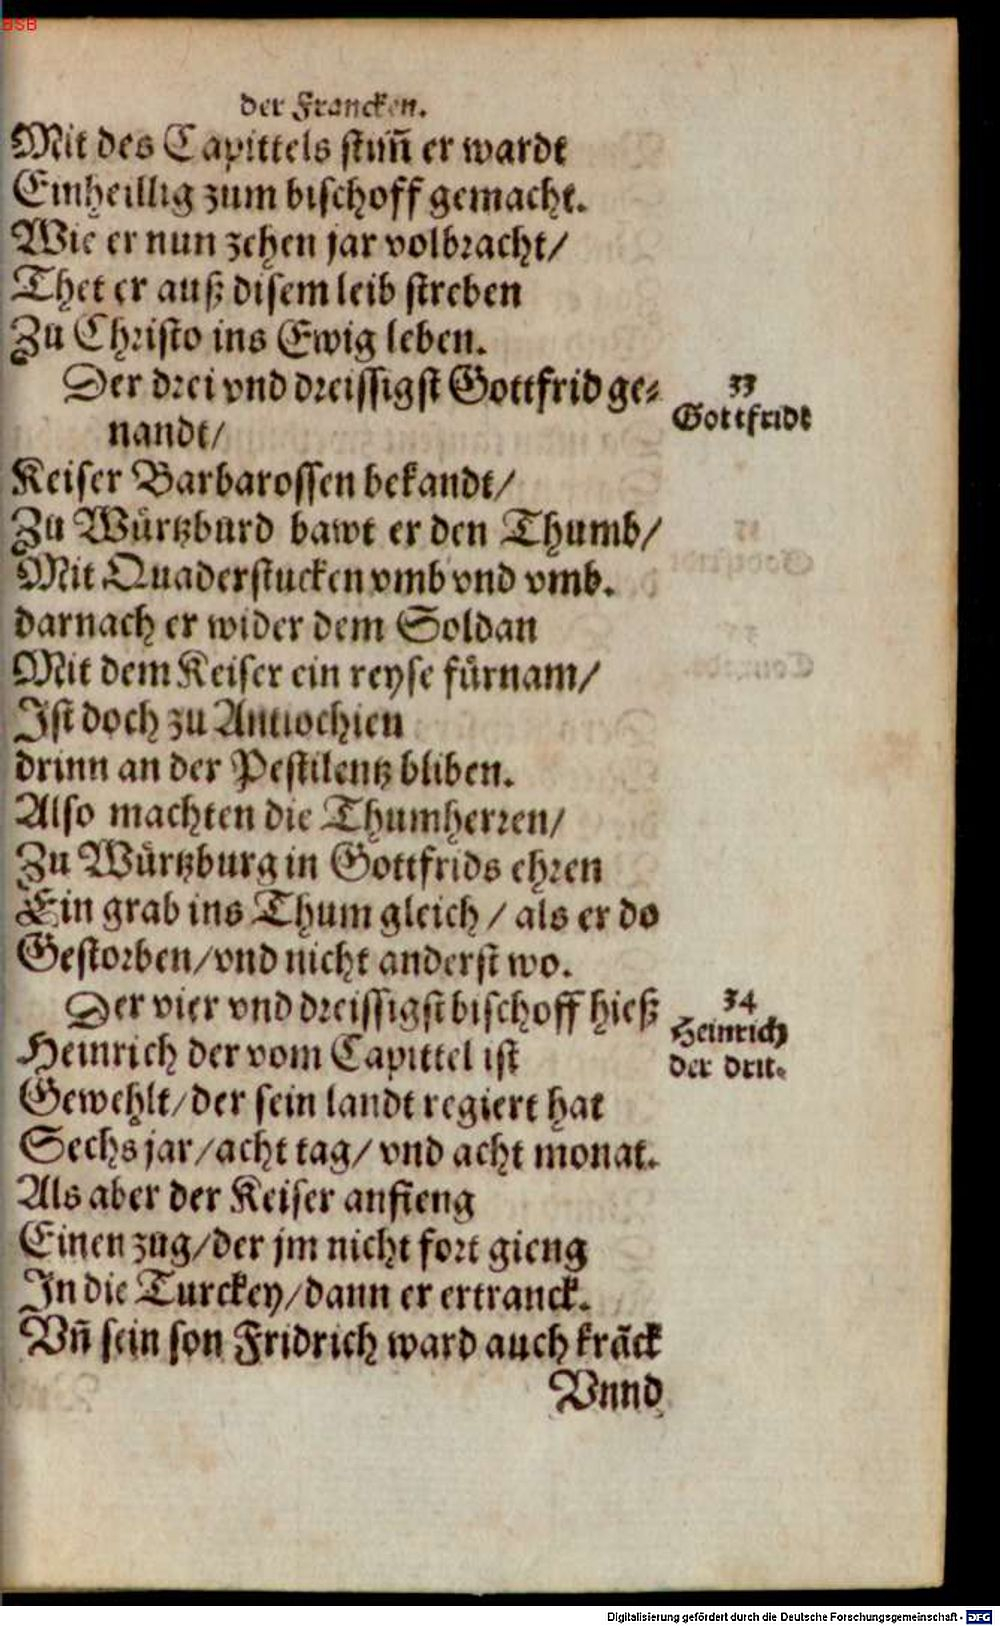 BSB
der Francken.
Mit des Capittels stim̄ er wardt
Einheillig zum bischoff gemacht.
Wie er nun zehen jar volbracht/
Thet er auß disem leib streben
Zu Christo ins Ewig leben.
Der drei vnd dreissigst Gottfrid ge⸗
nandt/
33
Gottfridt
Keiser Barbarossen bekandt/
Zu Wuͤrtzburd bawt er den Thumb/
Mit Quaderstucken vmb vnd vmb.
darnach er wider dem Soldan
Mit dem Keiser ein reyse fuͤrnam/
Ist doch zu Antiochien
drinn an der Pestilentz bliben.
Also machten die Thumherren/
Zu Wuͤrtzburg in Gottfrids ehren
Ein grab ins Thum gleich / als er do
Gestorben/vnd nicht anderst wo.
Der vier vnd dreissigst bischoff hieß
34
Heinrich
der drit.
Heinrich der vom Capittel ist
Gewehlt/der sein landt regiert hat
Sechs jar/acht tag/ vnd acht monat.
Als aber der Keiser anfieng
Einen zug/der jm nicht fort gieng
In die Turckey/dann er ertranck.
Vn̄ sein son Fridrich ward auch krāck
Vnnd
Digitalisierung gefördert durch die Deutsche Forschungsgemeinschaft - DFG